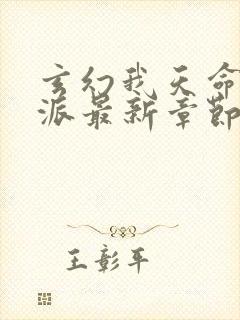 玄幻我天命
派最新章節
王彰平